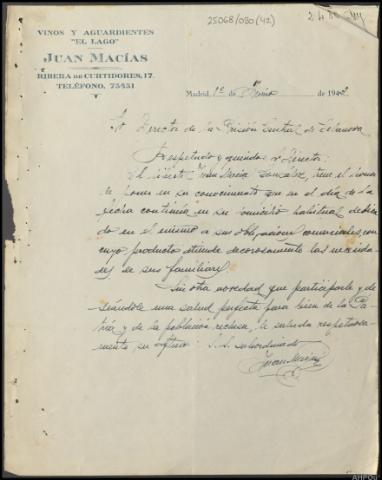 25068/080(42)
VINOS Y AGUARDIENTES
"EL LAGO"
JUAN MACÍAS
RIBERA DE CURTIDORES, 17.
TELÉFONO, 75451
Madrid, 1º de de 1942
Sr Director de la Prisión Central de Celanova
Respetado y querido Sr Director:
El Macias Gonzalez, tiene el honor
de poner en su conocimiento que en el día de la
fecha continúa en su domicilio habitual dedican
do en el mismo a sus obligaciones comerciales, con
cuyo producto atiende decorosamente las necesida
des de sus familiares
Sin otra novedad que participarle y de
seándole una salud perfecta para bien de la Pa
tria y de la población reclusa, le saluda respetuosa
mente su S.S. subordinado
Juan Macias